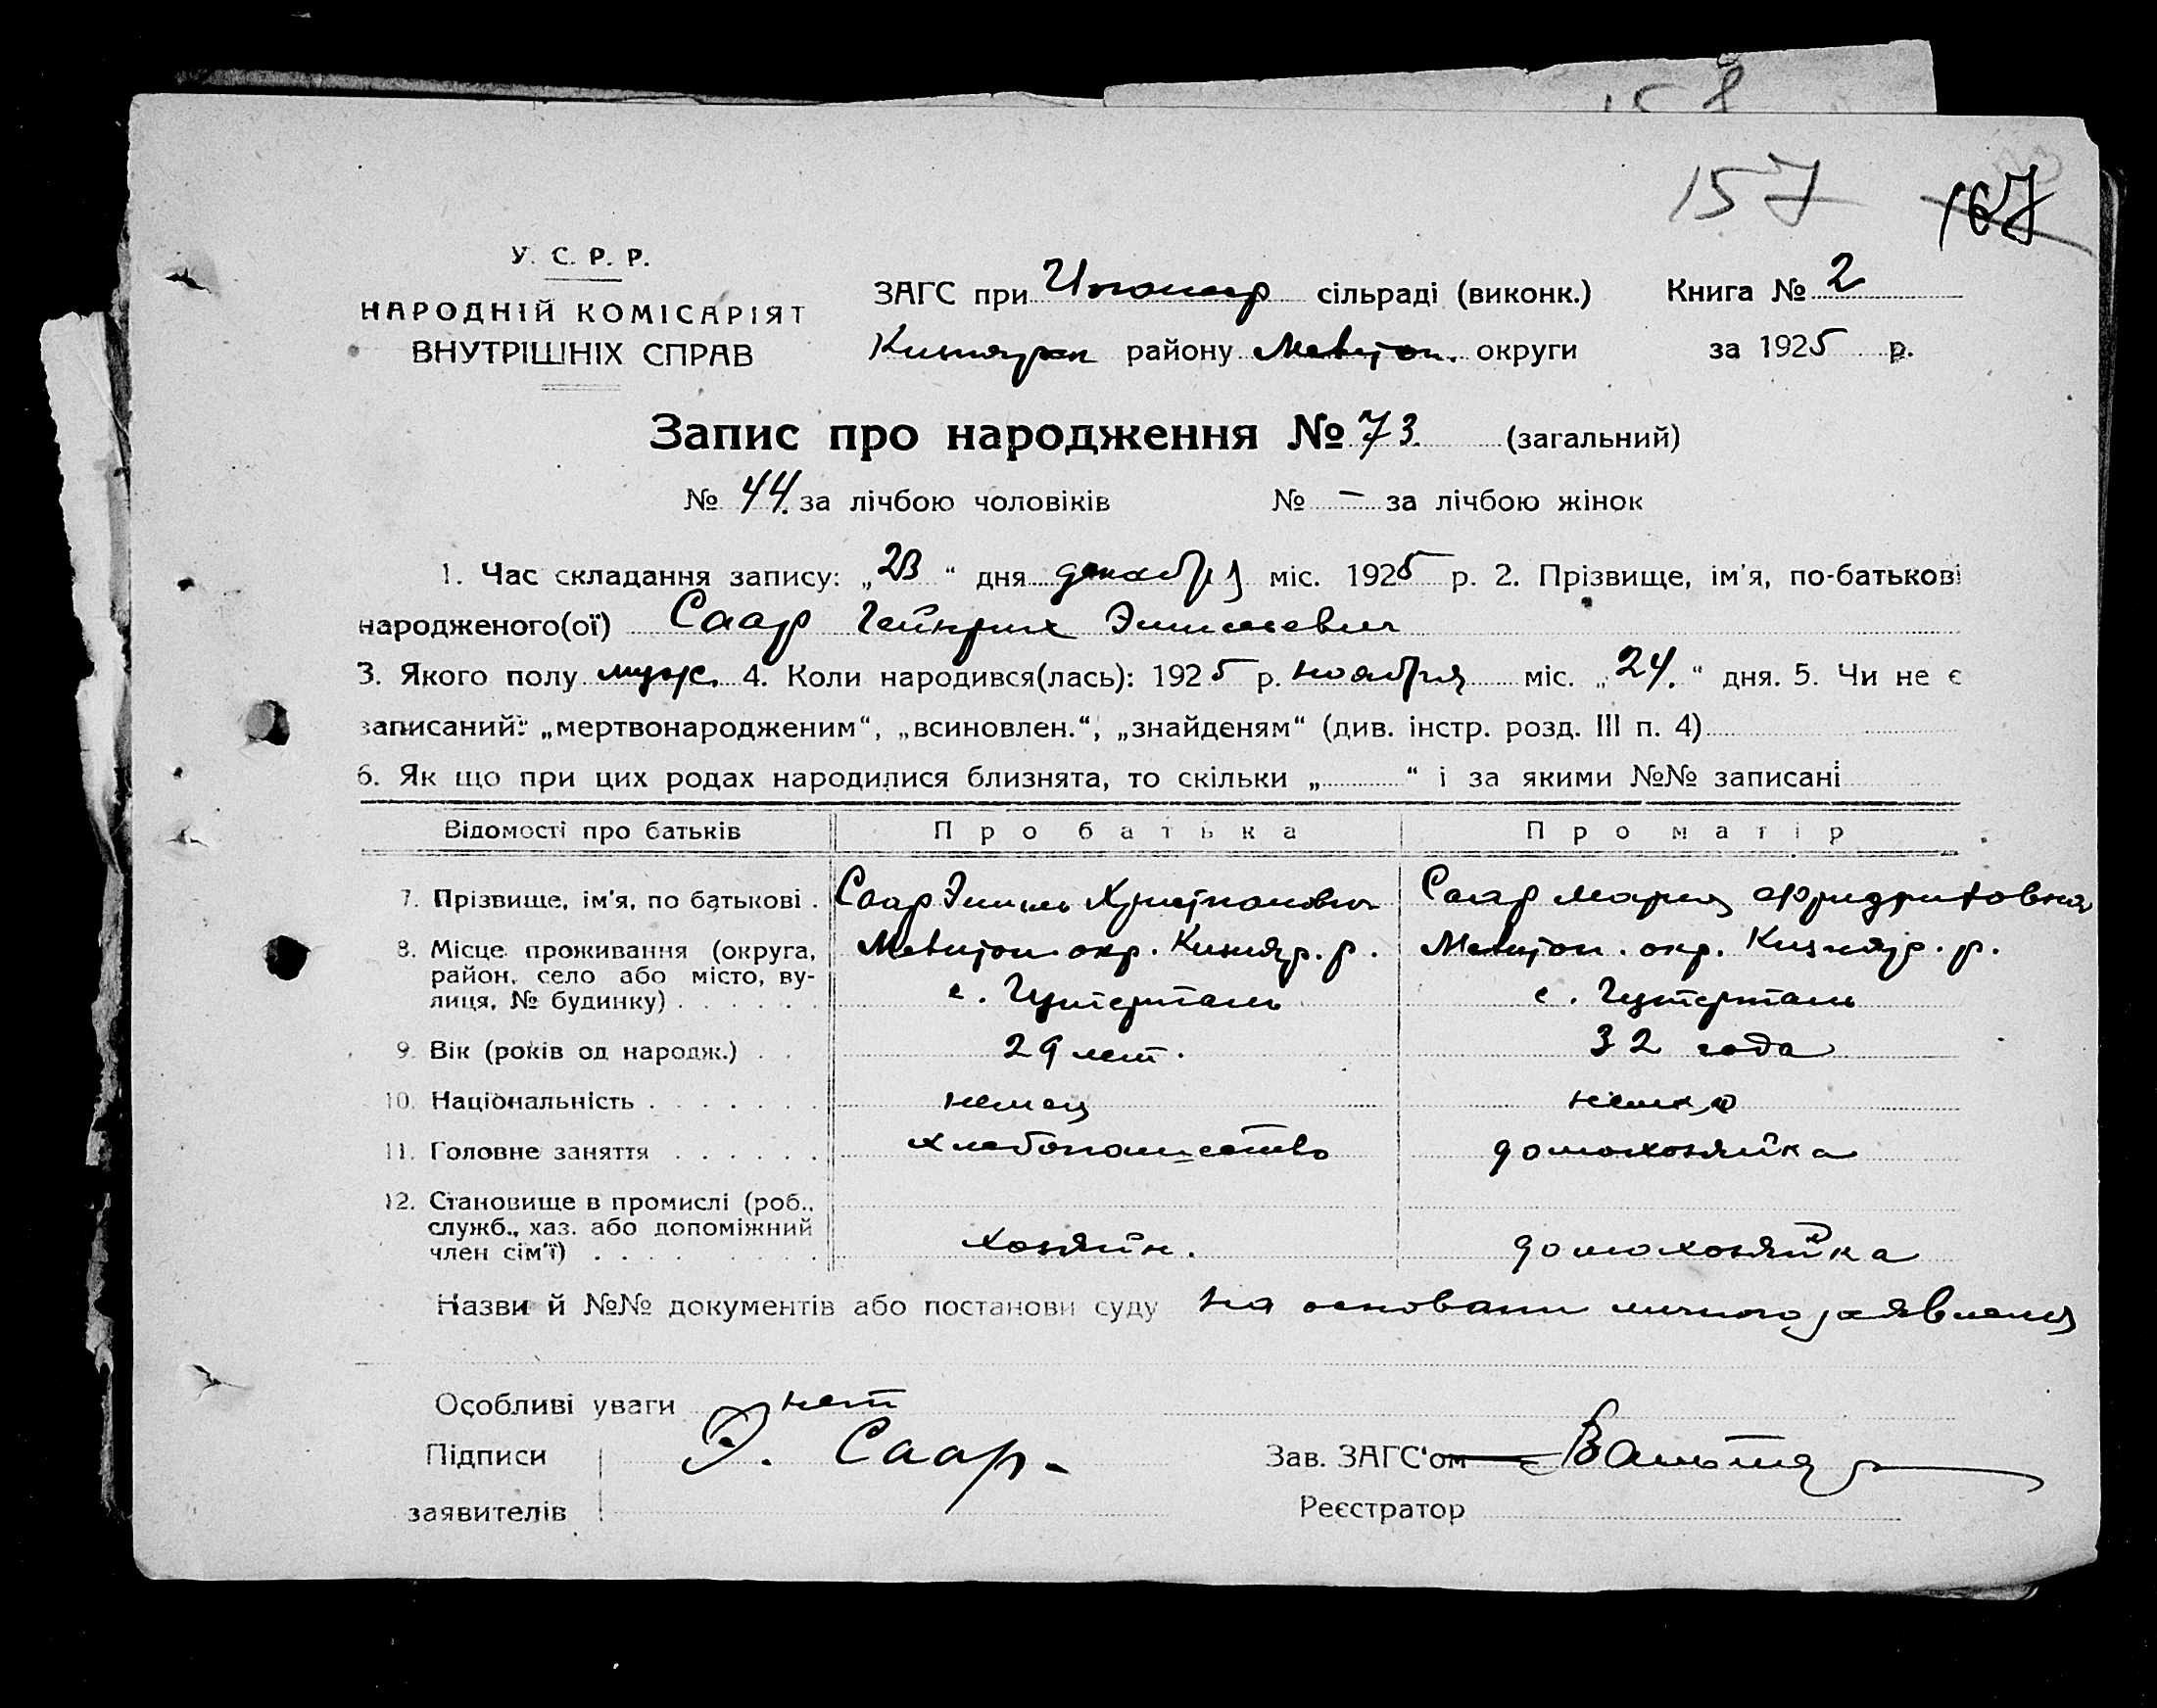 158
157 167
У. С. Р. Р.
НАРОДНІЙ КОМІСАРІЯТ
ВНУТРІШНІХ СПРАВ
ЗАГС при сільраді (виконк.) Книга № 2
району Мелитоп. округи за 1925 р.
Запис про народження № 73. (загальний)
№ 44. за лічбою чоловіків № — за лічбою жінок
1. Час складання запису: „23 “ дня декабря міс. 1925 р. 2. Прізвище, ім'я, по-батькові
народженого(ої) Саар Гейнрих Эмилевич
3. Якого полу муж. 4. Коли народився(лась): 1925 р. ноября міс. „24.“ дня. 5. Чи не є
записаний: „мертвонародженим“, „всиновлен.“, „знайденям“ (див. інстр. розд. III п. 4)
6. Як що при цих родах народилися близнята, то скільки „ “ і за якими №№ записані
Відомості про батьків Про батька Про матір
7. Прізвище, ім'я, по батькові . Саар Эмиль Христианович Саар Мария Фридриховна
8. Місце проживання (округа, Мелитоп. окр. Кизияр. р. Мелитоп. окр. Кизияр. р.
район, село або місто, ву-
лиця, № будинку) . . . . . . с. Гутерталь с. Гутерталь
9. Вік (років од народж.) . . 29 лет. 32 года
10. Національність . . . . . . . немец немка
11. Головне заняття . . . . . . хлебопашество домохозяйка
12. Становище в промислі (роб.,
служб., хаз. або допоміжний
член сім'ї) . . . . . . . хозяин. домохозяйка
Назви й №№ документів або постанови суду На основани личного заявления
Особливі уваги нет
Підписи Э. Саар. Зав. ЗАГС'ом
заявителів Реєстратор